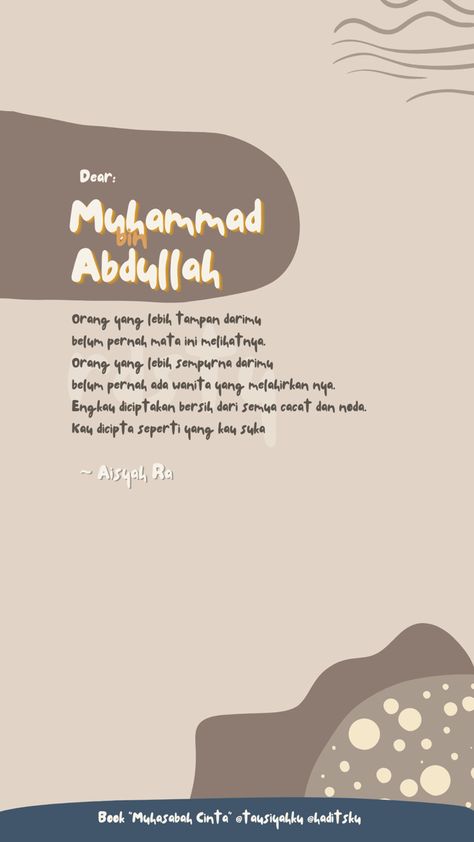 Dear:
Muhammad
bin
Abdullah
Orang yang lebih tampan darimu
belum pernah mata ini melihatnya.
Orang yang lebih sempurna darimu
belum pernah ada wanita yang melahirkan nya.
Engkau diciptakan bersih dari semua cacat dan noda.
Kau dicipta seperti yang kau suka
~ Aisyah Ra
Book "Muhasabah Cinta" @tausiyahku @haditsku